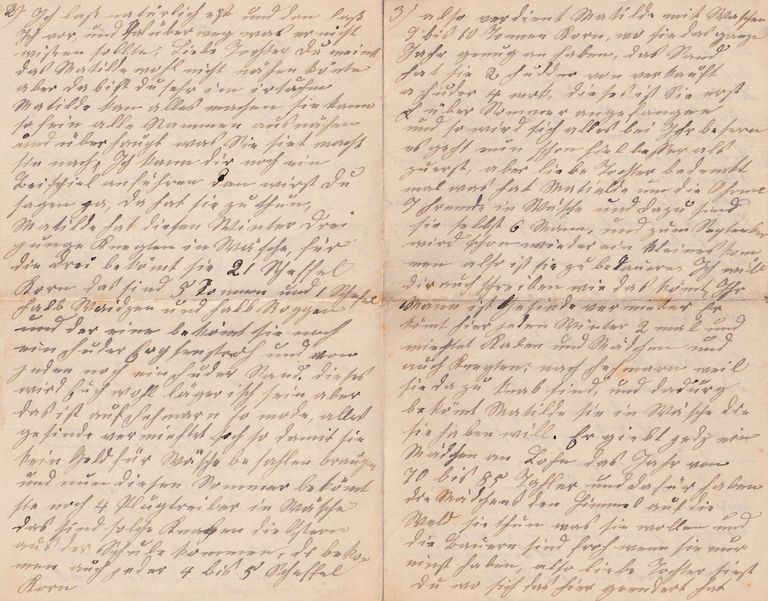 2) Ich laß natürlich erst und dan laß
Ich vor, und
wißen sollte, Liebe Tochter Du meinst
das Matilde wohl nicht nähen könte
aber da bist du sehr im irtuhm
Matilde kan alles machen sie kann
so fein alle Nammen ausnähen
und überhaupt was Sie siet macht
sie nach, Ich kann dir noch ein
Beispiel anführen dan wirst du
sagen ja, da hat sie zu thun,
Matilde hat diesen Winter drei
junge Knegten in Wäsche, für
die drei bekömt sie 21 Scheffel
Korn das sind 5 Tonnen und 1 Scheffel
halb Waidzen und halb Roggen
und der eine bekömt sie noch
ein Fuder Erbsenstroh und von
jeden noch ein Fuder Sand. dieses
wird Euch wohl sein aber
das ist auf Fehmarn so mode, alles
gesinde vermiehtet sich so damit sie
kein Geld für Wäsche bezahlen braugen
und nun diesen Sommer bekömt
sie noch 4 Plugtreiber in Wäsche
das sind solche Knaben die Ostern
aus der Schule kommen, da beko-
men auch jeder 4 bis 5 Scheffel
Korn
3) also verdient Matilde mit Waschen
9 bis 10 Tonnen Korn, wo sie das ganze
Jahr genug an haben, das Sand
hat sie 2 Fudder von verkauft
a Fuder 4 mrk, dieses ist Sie erst
über Sommer angefangen
und so wird sich alles bei Ihr bessern
es geht nun schon viel besser als
zuerst, aber liebe Tochter bedenk
mal was hat Matilde um die Ohren
7 fremde in Wäsche und dazu sind
sie selbst 6 Mann, und zum September
wird schon wieder ein kleines kom
men also ist sie zu bedauern, Ich will
dir auch schreiben wie das kömt, Ihr
Mann ist Gesinde vermieter Er
kömt hier jeden Winter 2 mal und
miethet Kaben und Mädchen und
auch Knegten, nach Fehmarn weil
sie da zu knab sind, und dadurg
bekömt Matilde sie in Wäsche die
sie haben will. Er giebt jetz ein
Mädchen an Lohn das Jahr von
70 bis 85 Tahler und dafür haben
die Mädchens den Himmel auf die
Welt sie thun was sie wollen und
die Bauern sind froh wenn sie nur
einst haben, also liebe Tochter siest
Du wo sich das hier geendert hat